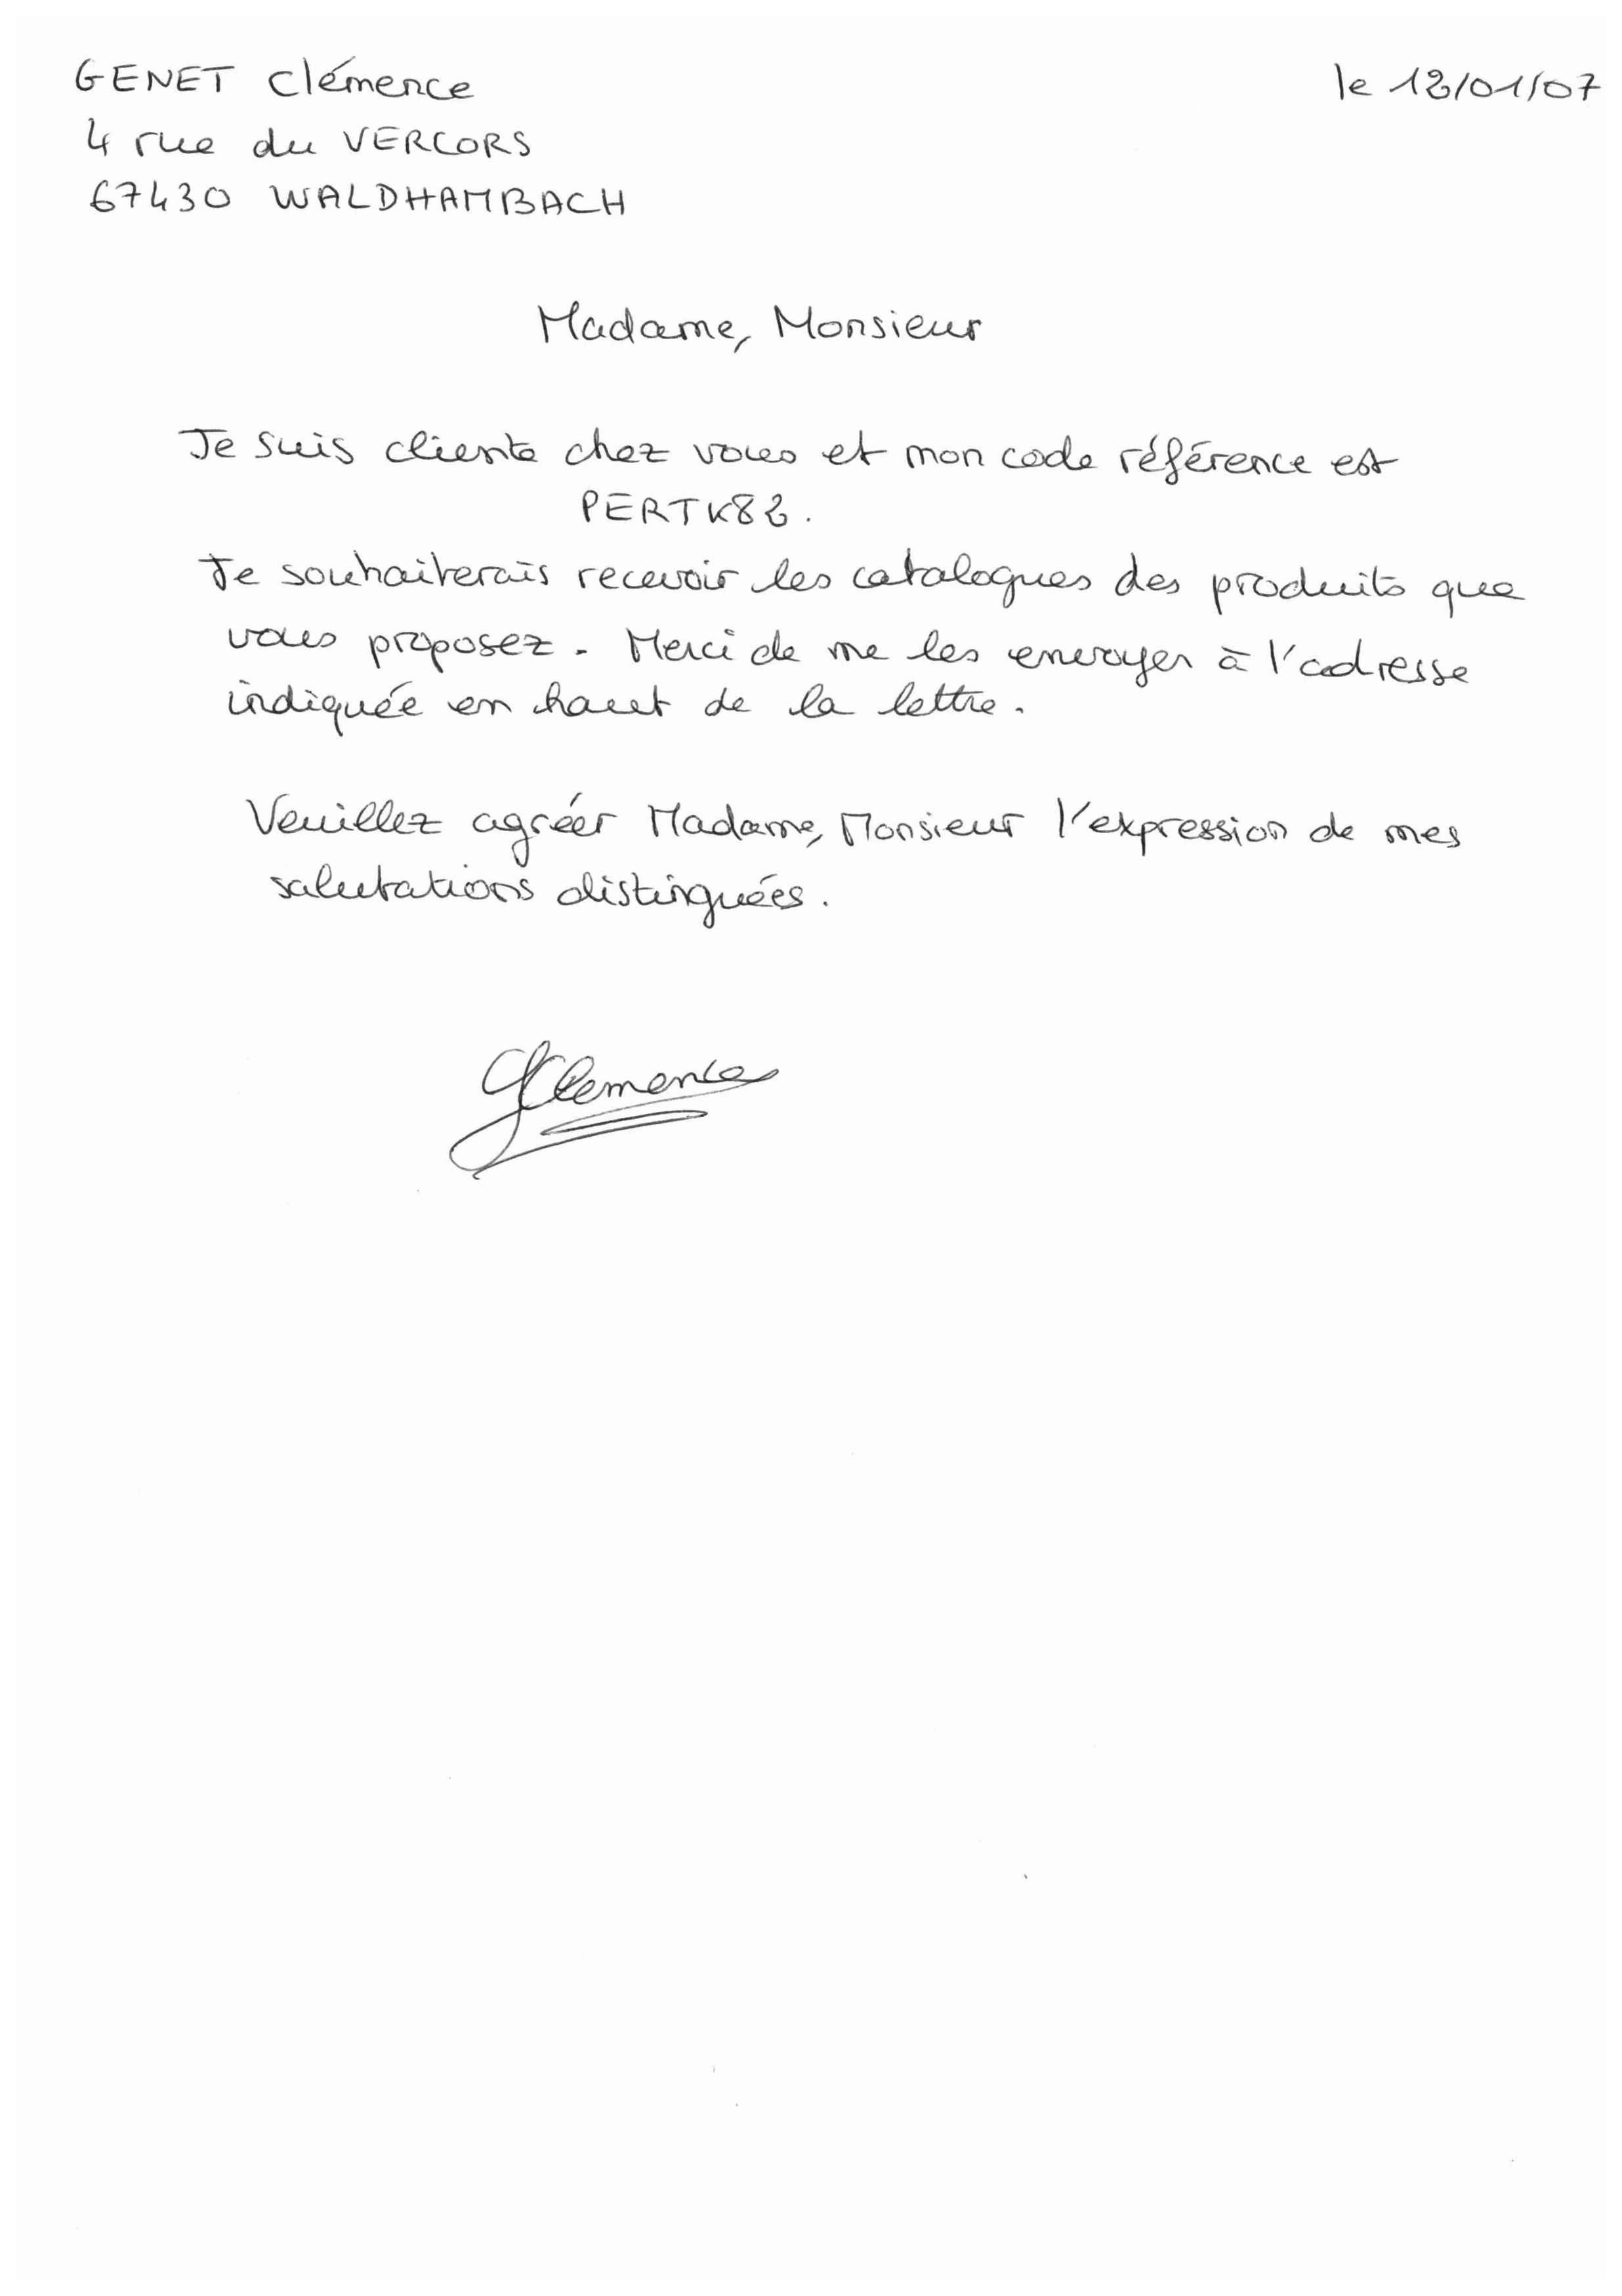 GENET Clémence
le 12/01/07
4 rue du VERCORS
67430 WALDHAMBACH
Madame, Monsieur
Je suis cliente chez vous et mon code référence est
PERTK82.
Je souhaiterais recevoir les catalogues des produits que
vous proposez. Merci de me les envoyer à l'adresse
indiquée en haut de la lettre.
Veuillez agréer Madame, Monsieur l'expression de mes
salutations distinguées.
Clemence